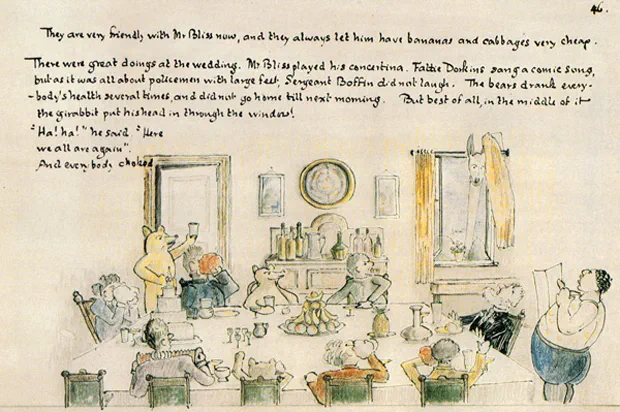 46.
They are very friendly with Mr Bliss now, and they always let him have bananas and cabbages very cheap.
There were great doings at the wedding. Mr Bliss played his concertina. Fattie Dorkins sang a comic song,
but as it was all about policemen with large feet, Sergeant Boffin did not laugh. The bears drank every-
-body's health several times, and did not go home till next morning. But best of all, in the middle of it
the girabbit put his head in through the window!
"Ha! ha!" he said "Here
we all are again".
And everybody choked